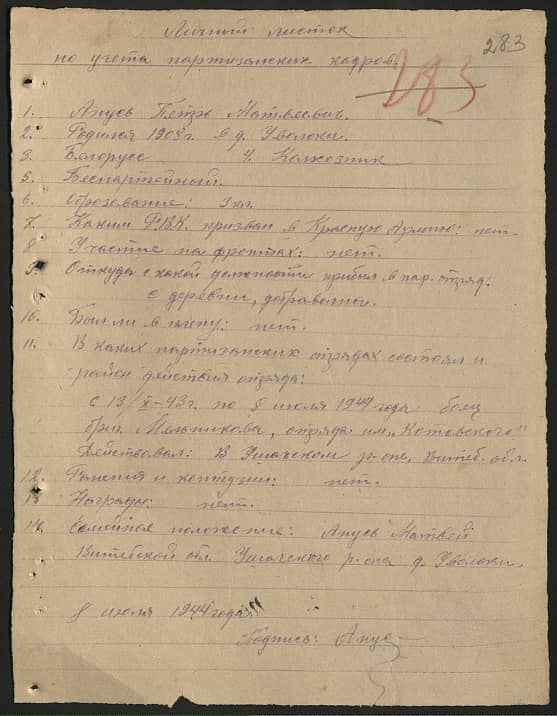 Личный листок 283
по учёту партизанских кадров. 283
1. Ануев Пётр Матвеевич.
2. Родился 1903 г. в д. Уволоки.
3. Белорус 4. Колхозник
5. Беспартейный.
6. Образование: 3 кл.
7. Каким Р.В.К. призван в Красную Армию: нет.
8. Участие на фронтах: нет.
9. Откуда с какой должности прибыл в пар. отряд.
с деревни,
10. Был ли в плену: нет.
11. В каких партизанских отрядах состоял и
район действия отряда:
с 13/X-43 г. по 8 июля 1944 года боец
бриг. Мельникова, отряда им. "Котовского"
Действовал: В Ушачском р-оне, Витеб. обл.
12. Ранения и контузии: нет.
13 Награды: нет.
14. Семейное положение: Ануев Матвей
Витебской об. Ушачского р-она д. Уволоки.
8 июля 1944 года
Подпись: Ануе